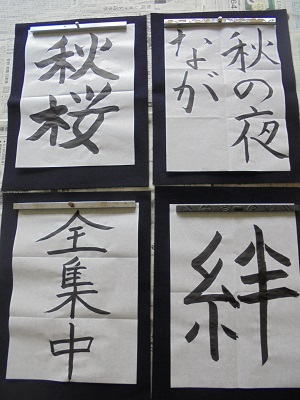 秋桜
秋の夜
なが
全集中
絆